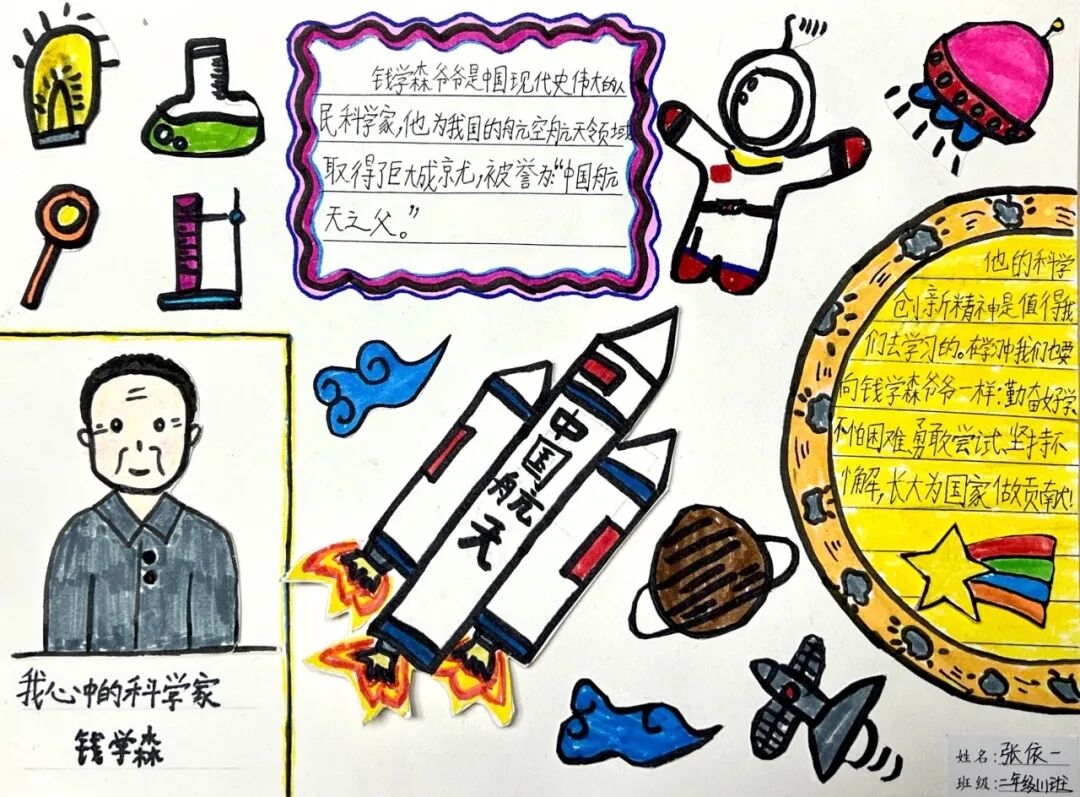 钱学森爷爷是中国现代史伟大的人
民科学家,他为我国的航空航天领域
取得了巨大成就,被誉为:“中国航
天之父。”
他的科学
创新精神是值得我
们去学习的。在学习中我们也要
向钱学森爷爷一样:勤奋好学
不怕困难、勇敢尝试、坚持不
懈,长大为国家做贡献!
中国航天
我心中的科学家
钱学森
姓名:张依一
班级:二年级(1)班